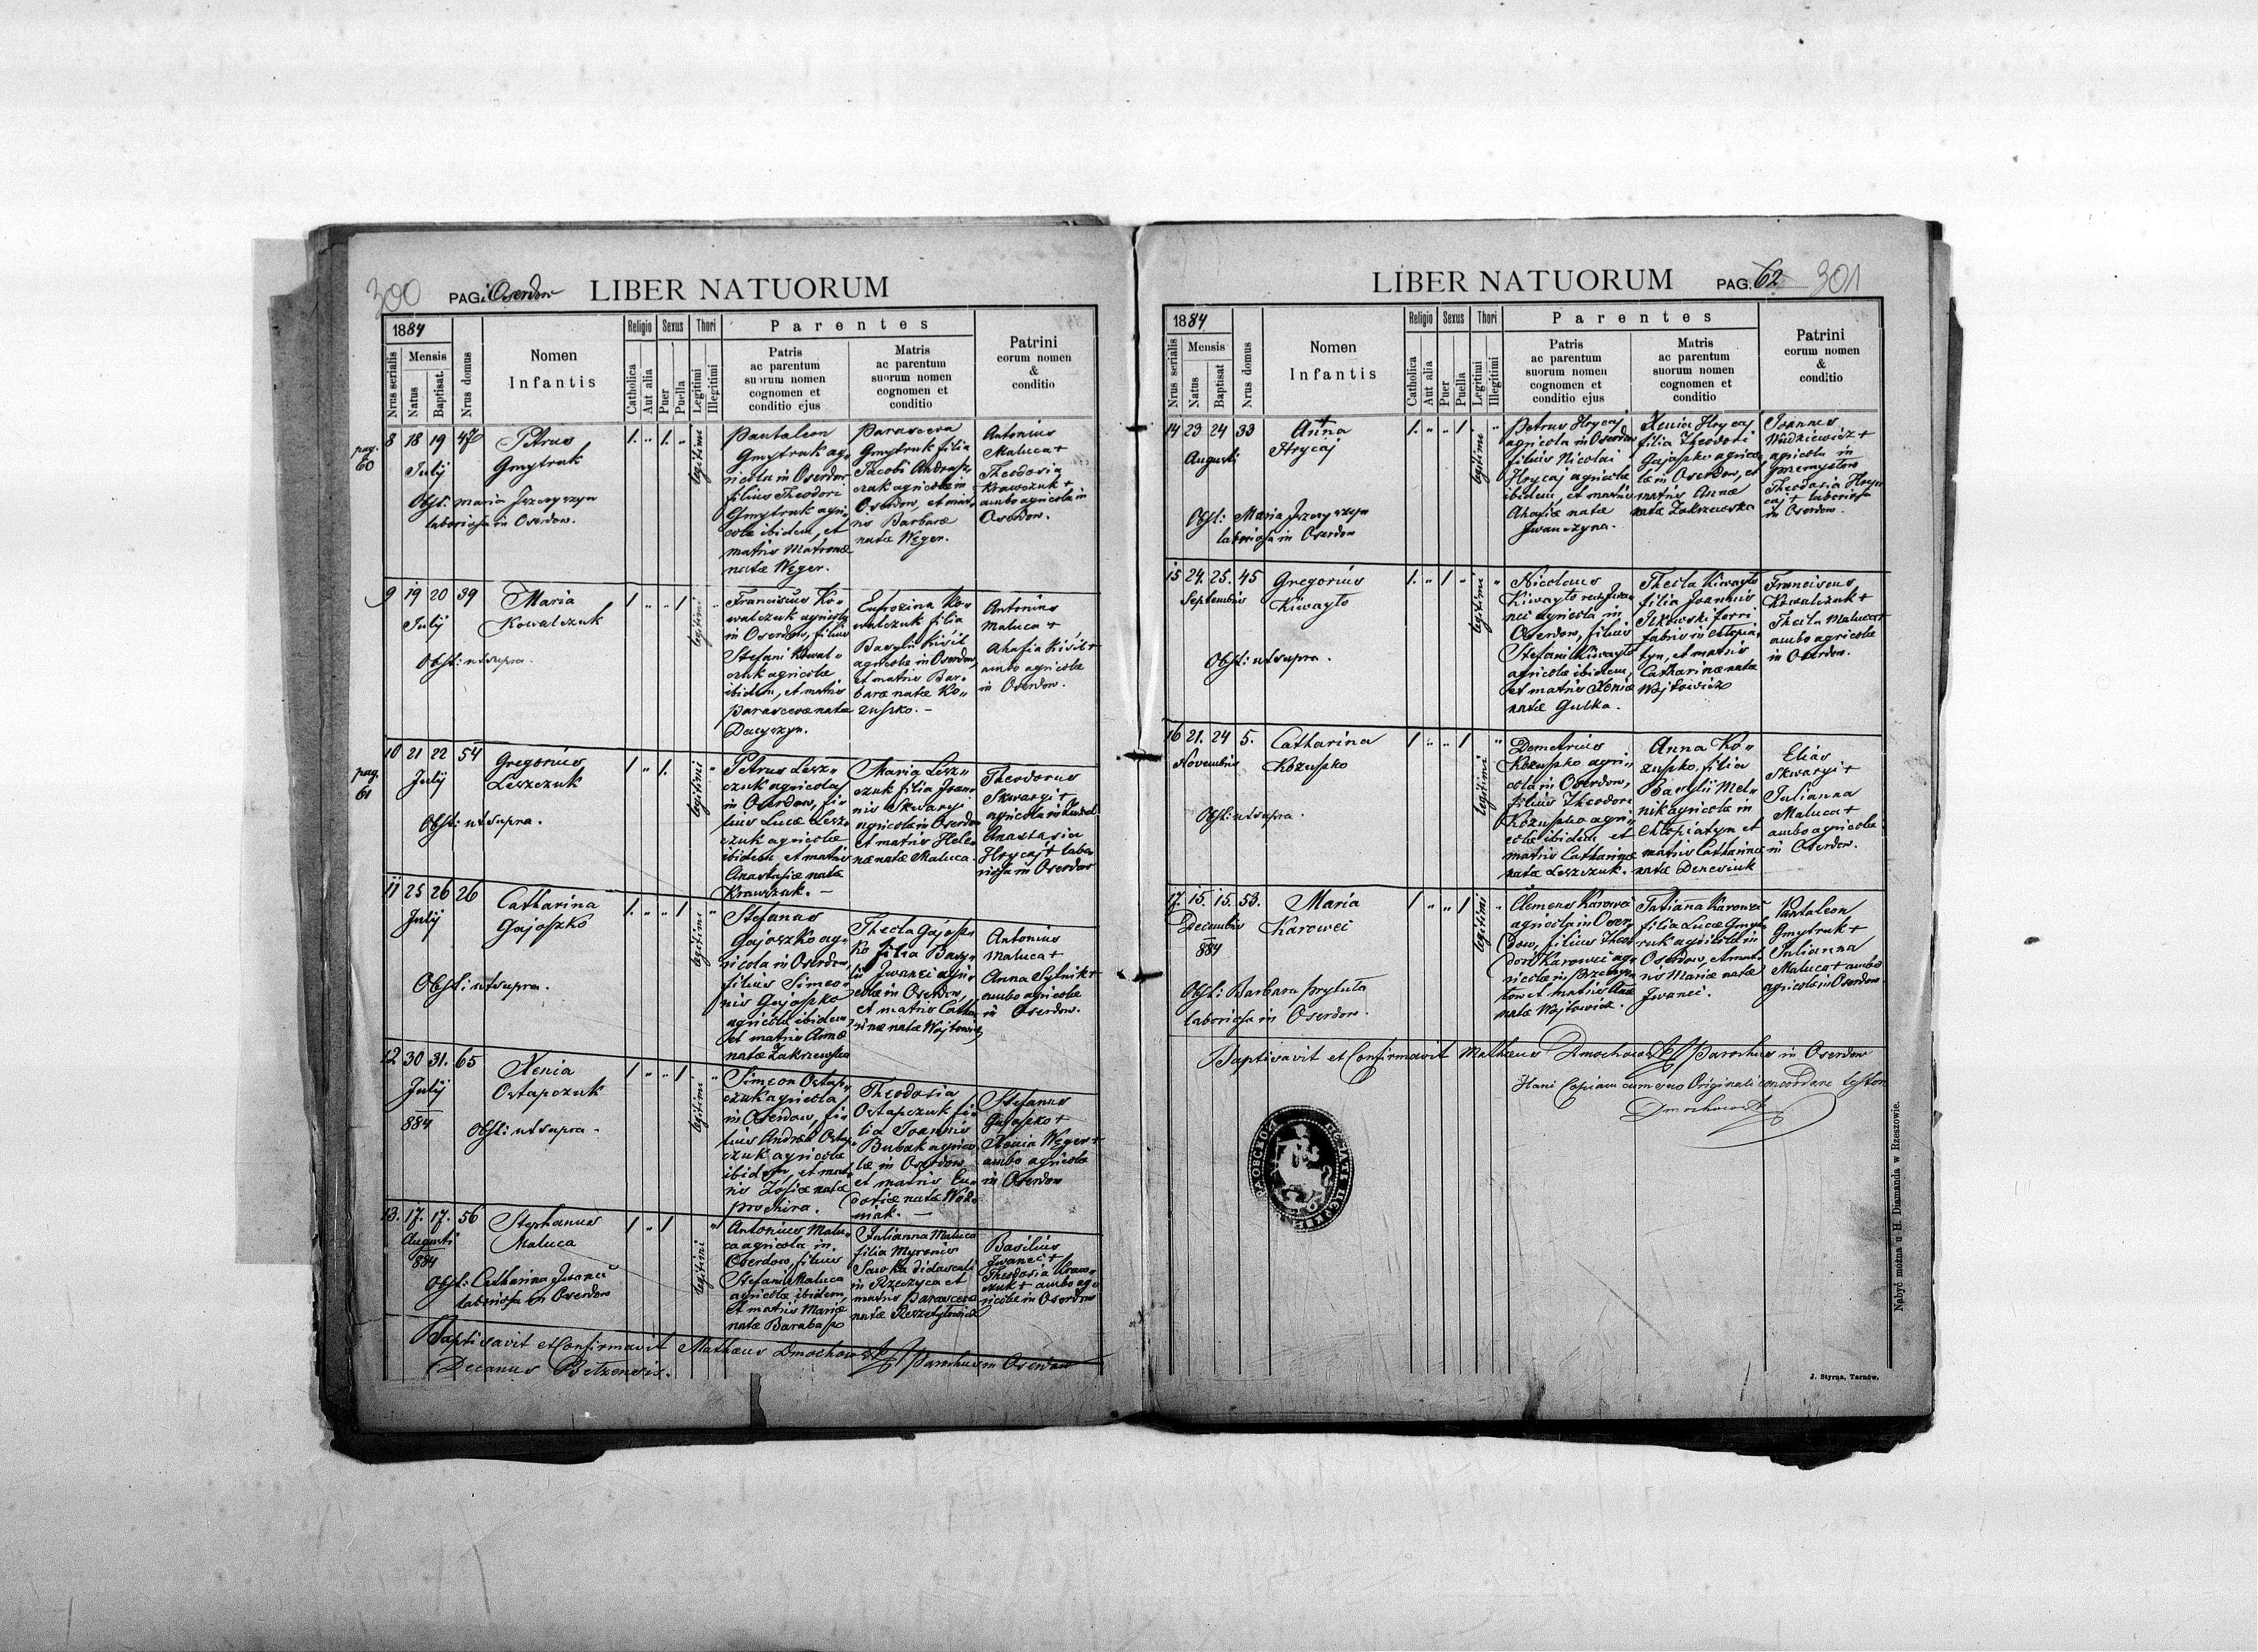 300 PAG. Oserdow LIBER NATUORUM
1884
Nrus serialis
Mensis
Natus
Baptisat.
Nrus domus
Nomen
Infantis
Religio
Catholica
Aut alia
Sexus
Puer
Puella
Thori
Legitimi
Illegitimi
Parentes
Patris
ac parentum
suorum nomen
cognomen et
conditio ejus
Matris
ac parentum
suorum nomen
cognomen et
conditio
Patrini
eorum nomen
&
conditio
pag.
60
8 18 19 47
July
Petrus
Gmytruk
Obst: Maria
laboriosa in Oserdow.
legitimi
Pantaleon
Gmytruk ag„
ricola in Oserdow
filius Theodori
Gmytruk agri„
colæ ibidem, et
matris Matronæ
natæ Węger.
Parasceva
Gmytruk filia
Jacobi
agricolæ in
Oserdow, et mat„
ris Barbaræ
natæ Węger.
Antonius
Maluca +
Theodosia
Krawczuk +
ambo agricolæ in
Oserdow.
9 19 20 39
July
Maria
Kowalczuk
Obst: ut supra.
legitimi
Franciscus Ko„
walczuk agricola
in Oserdow, filius
Stefani Kowal„
czuk agricolæ
ibidem, et matris
Parascevæ natæ
Dacyszyn.
Eufrozina Ko„
walczuk filia
Basylii Kisil
agricolæ in Oserdow,
et matris Bar„
baræ natæ Ko„
zuszko. —
Antonius
Maluca +
Ahafia Kisil +
ambo agricolæ
in Oserdow.
pag.
61
10 21 22 54
July
Gregorius
Leszczuk
Obst: ut supra.
legitimi
Petrus Lesz„
czuk agricola
in Oserdow, fi„
lius Lucæ Lesz„
czuk agricolæ
ibidem et matris
Anastasiæ natæ
Krawczuk. —
Maria Lesz„
czuk filia Joan„
nis Skwaryi
agricolæ in Oserdow
et matris Hele„
næ natæ Maluca.
Theodorus
Skwaryi +
agricola in
Anastasia
Hrycaj + labo„
riosa in Oserdow
11 25 26 26
July
Catharina
Gajoszko
Obst: ut supra.
legitimi
Stefanus
Gajoszko ag„
ricola in Oserdow,
filius Simeo„
nis Gajoszko
agricolæ ibidem,
et matris Annæ
natæ Zakrzewska
Thecla Gajosz„
ko filia Basy„
lii Jwanci agri„
colæ in Oserdow,
et matris Catha„
rinæ natæ Wojtowicz
Antonius
Maluca +
Anna Sytnik +
ambo agricolæ
in Oserdow.
12 30 31. 65
July
884
Xenia
Ostapczuk
Obst: ut supra.
legitimi
Simeon Ostap„
czuk agricola
in Oserdow, fi„
lius Andreæ Ostap„
czuk agricolæ
ibidem, et mat„
ris Zofiæ natæ
Prochira.
Theodosia
Ostapczuk fi„
lia Joannis
Bubak agrico„
læ in Oserdow
et matris Eu„
doxiæ natæ Woź„
niak. —
Stefanus
Gajoszko +
Xenia Węger +
ambo agricolæ
in Oserdow
13. 17. 17. 56
Augusti
884
Stephanus
Maluca
Obst: Catharina Jwanci
laboriosa in Oserdow
legitimi
Antonius Malu„
ca agricola in
Oserdow, filius
Stefani Maluca
agricolæ ibidem,
et matris Mariæ
natæ Barabasz
Julianna Maluca
filia Myronis
Sawka didascali
in Rzeczyca et
matris Parascevæ
natæ Reszetyłowicz
Basilius
Jwanci +
Theodosia Kraw„
czuk + ambo ag„
ricolæ in Oserdow
Baptisavit et Confirmavit Mathæus Dmochowski Parochus in Oserdow
Decanus Bełzensis.
LIBER NATUORUM PAG. 62 301
1884
Nrus serialis
Mensis
Natus
Baptisat
Nrus domus
Nomen
Infantis
Religio
Catholica
Aut alia
Sexus
Puer
Puella
Thori
Legitimi
Illegitimi
Parentes
Patris
ac parentum
suorum nomen
cognomen et
conditio ejus
Matris
ac parentum
suorum nomen
cognomen et
conditio
Patrini
eorum nomen
&
conditio
14 23 24 33
Augusti
Anna
Hrycaj
Obst: Maria
laboriosa in Oserdow
legitimi
Petrus Hrycaj
agricola in Oserdow
filius Nicolai
Hrycaj agricolæ
ibidem, et matris
Ahafiæ natæ
Jwanczyna.
Xenia Hrycaj
filia Theodori
Gajoszko agrico„
læ in Oserdow, et
matris Annæ
natæ Zakrzewska
Joannes
Wudkiewicz +
agricola in
Przemysłow
Theodosia Hry„
caj + laboriosa
in Oserdow.
15 24. 25. 45
Septembris
Gregorius
Kiwayło
Obst: ut supra.
legitimi
Nicolaus
Kiwayło recte Jwan„
nci agricola in
Oserdow, filius
Stefani Kiwayło
agricolæ ibidem,
et matris Xeniæ
natæ Gulka.
Thecla Kiwayło
filia Joannis
Jłkowski ferri
fabris in Chłopia„
tyn, et matris
Catharinæ natæ
Wojtowicz
Franciscus
Kowalczuk +
Thecla Maluca +
ambo agricolæ
in Oserdow.
16 21. 24 5.
Novembris
Catharina
Kozuszko
Obst: ut supra.
legitimi
Demetrius
Kozuszko agri„
cola in Oserdow,
filius Theodori
Kozuszko agri„
colæ ibidem et
matris Catharinæ
natæ Leszczuk.
Anna Ko„
zuszko, filia
Basylii Mel„
nik agricolæ in
Chłopiatyn et
matris Catharinæ
natæ Denesiuk
Elias
Skwaryi +
Julianna
Maluca +
ambo agricolæ
in Oserdow.
17. 15. 15. 53.
Decembris
884
Maria
Karowci
Obst: Barbara Prytuła
laboriosa in Oserdow.
legitimi
Clemens Karowci
agricola in Oser„
dow, filius Theo„
dori Karowci ag„
ricolæ in
et matris
natæ Wojtowicz.
Tatianna Karowci
filia Lucæ Gmyt„
ruk agricolæ in
Oserdow, et mat„
ris Mariæ natæ
Jwanci.
Pantaleon
Gmytruk +
Julianna
Maluca + ambo
agricolæ in Oserdow
Baptisavit et Confirmavit Mathæus Dmochowski Parochus in Oserdow
Hanc Copiam cum suo Originali concordare testor
Dmochowski
Nabyć można u H. Diamanda w Rzeszowie.
J. Styrna, Tarnów.